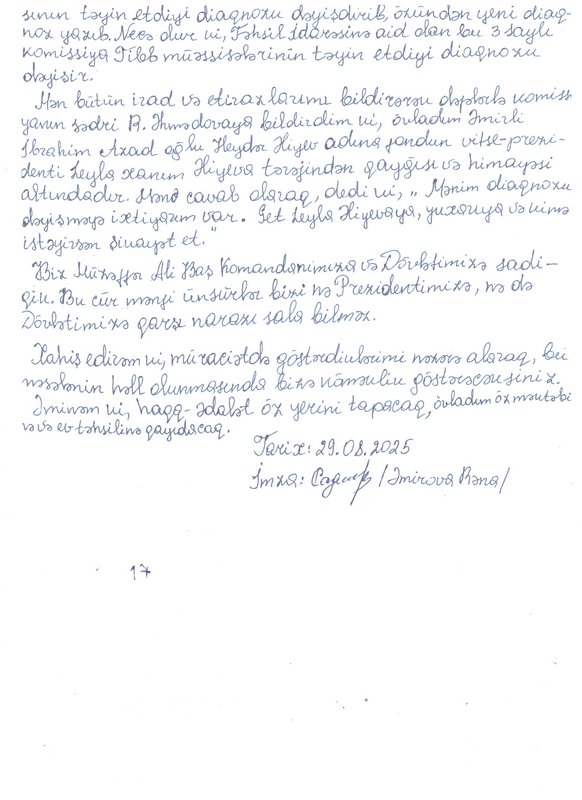 sının təyin etdiyi diaqnozu dəyişdirib, özündən yeni diaq-
noz yazıb. Necə olur ki, Təhsil İdarəsinə aid olan bu 3 saylı
komissiya Tibb müəssisələrinin təyin etdiyi diaqnozu
dəyişir.
Mən bütün irad və etirazlarımı bildirərək dəfələrlə komissi
yanın sədri R. Əhmədovaya bildirdim ki, övladım Əmirli
İbrahim Azad oğlu Heydər Əliyev adına fondun vitse-prezi-
denti Leyla xanım Əliyeva tərəfindən qayğısı və himayəsi
altındadır. Mənə cavab olaraq, dedi ki, „Mənim diaqnozu
dəyişməyə ixtiyarım var. Get Leyla Əliyevaya, yuxarıya və kimə
istəyirsən şikayət et."
Biz Müzəffər Ali Baş Komandanımıza və Dövlətimizə sadi-
qik. Bu cür mənfi ünsürlər bizi nə Prezidentimizə, nə də
Dövlətimizə qarşı narazı sala bilməz.
Xahiş edirəm ki, müraciətdə göstərdiklərimi nəzərə alaraq, bu
məsələnin həll olunmasında bizə köməklik göstərəcəksiniz.
Əminəm ki, haqq-ədalət öz yerini tapacaq, övladım öz məktəbi
nə və ev təhsilinə qayıdacaq.
Tarix: 29.08.2025
İmza: /Əmirova Rəna/
17